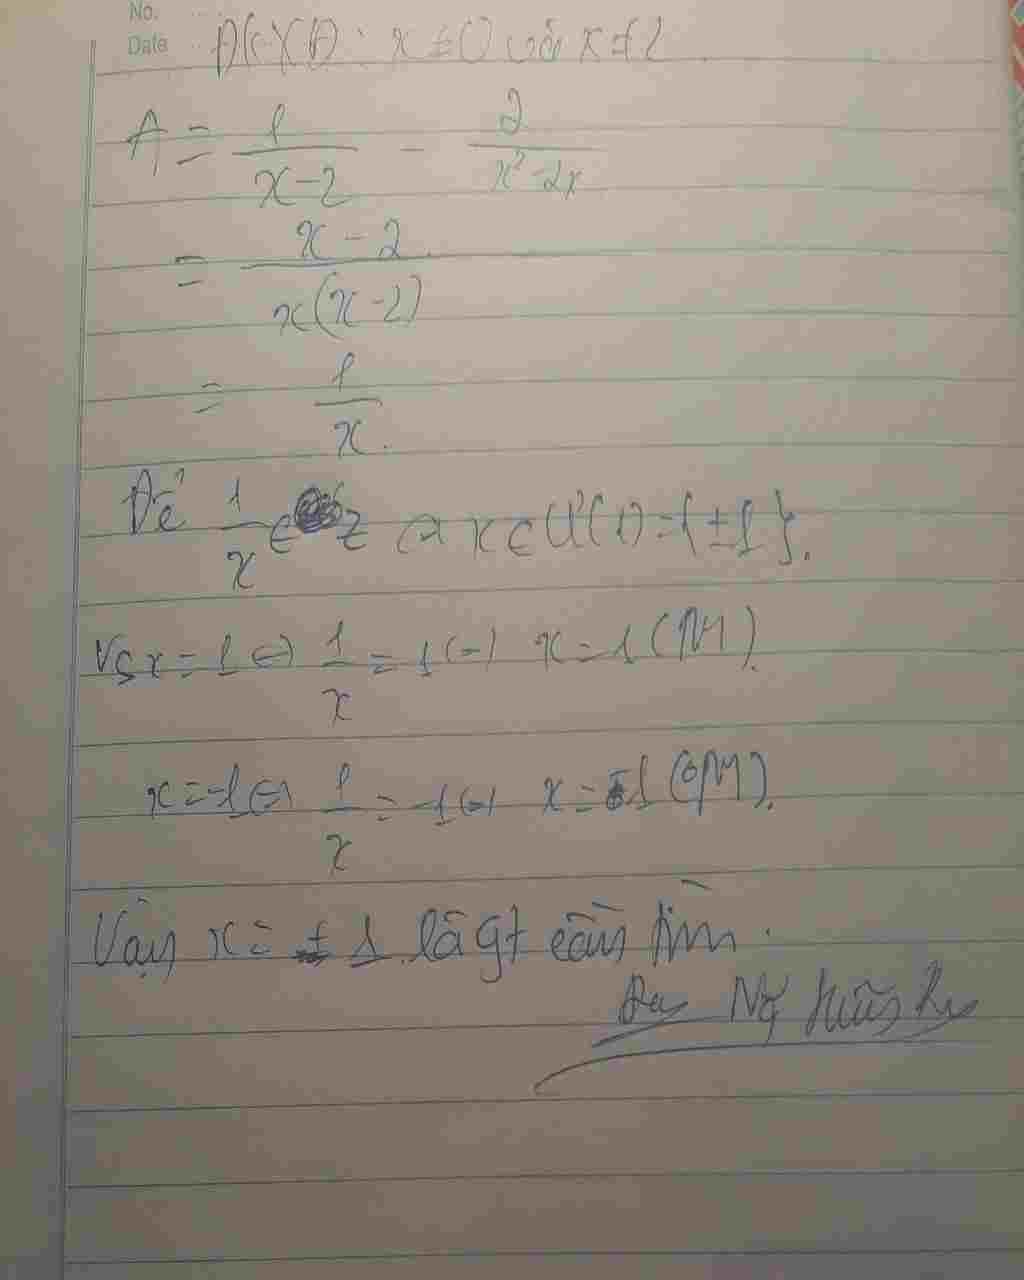 No.
Date
ĐKXĐ: x ≠ 0 và x ≠ 2
A = 1/(x-2) - 2/(x²-2x)
= (x-2)/(x(x-2))
= 1/x.
Để 1/x ∈ Z x ∈ Ư(1) = {±1}.
Vs x = 1 (=) 1/x = 1 (=) x = 1 (TM).
x = -1 (=) 1/x = -1 (=) x = -1 (TM).
Vậy x = ± 1 là gt cần tìm.